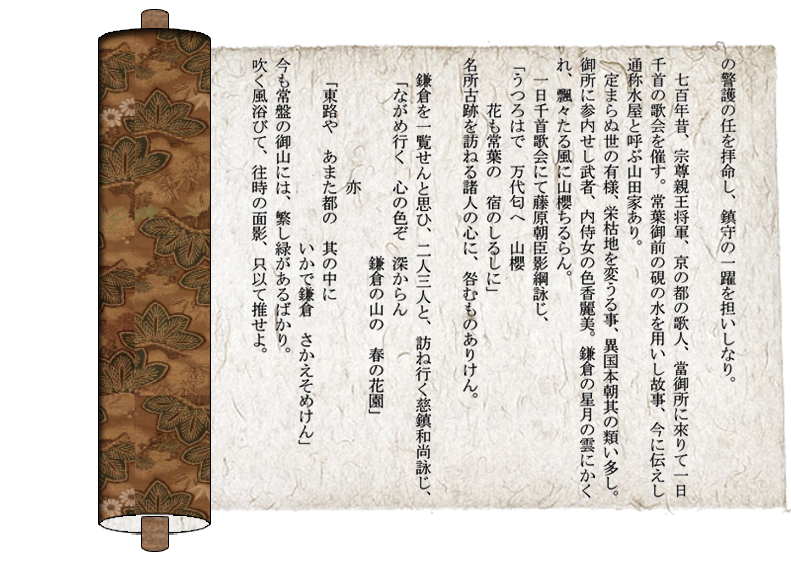 の警護の任を拝命し、鎮守の一躍を担いしなり。
七百年昔、宗尊親王将軍、京の都の歌人、當御所に來りて一日
千首の歌会を催す。常葉御前の硯の水を用いし故事、今に伝えし
通称水屋と呼ぶ山田家あり。
定まらぬ世の有様、栄枯地を変うる事、異国本朝其の類い多し。
御所に参内せし武者、内侍女の色香麗美。鎌倉の星月の雲にかく
れ、飄々たる風に山櫻ちるらん。
一日千首歌会にて藤原朝臣影綱詠じ、
「うつろはで　万代匂へ　山櫻
花も常葉の　宿のしるしに」
名所古跡を訪ねる諸人の心に、咎むものありけん。
鎌倉を一覧せんと思ひ、二人三人と、訪ね行く慈鎮和尚詠じ、
「ながめ行く　心の色ぞ　深からん
鎌倉の山の　春の花園」
亦
「東路や　あまた都の　其の中に
いかで鎌倉　さかえそめけん」
今も常盤の御山には、繁し緑があるばかり。
吹く風浴びて、往時の面影、只以て推せよ。